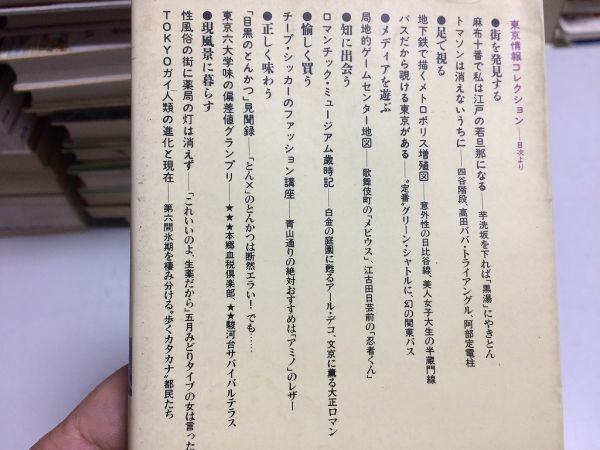 東京情報コレクション——目次より
●街を発見する
麻布十番で私は江戸の若旦那になる——芋洗坂を下れば「黒湯」にやきとん
トマソンは消えないうちに——四谷階段、高田ババ・トライアングル、阿部定電柱
●足で視る
地下鉄で描くメトロポリス増殖図——意外性の日比谷線、美人女子大生の半蔵門線
バスだから覗ける東京がある——“定番”グリーン・シャトルに、幻の関東バス
●メディアを遊ぶ
局地的ゲームセンター地図——歌舞伎町の「メビウス」、江古田日芸前の「忍者くん」
●知に出会う
ロマンチック・ミュージアム歳時記——白金の庭園に甦るアール・デコ、文京に薫る大正ロマン
●愉しく買う
チープ・シッカーのファッション講座——青山通りの絶対おすすめは「アミノ」のレザー
●正しく味わう
「目黒のとんかつ」見聞録——「とん✕」のとんかつは断然エラい！でも……
東京六大学味の偏差値グランプリ——★★★本郷血税倶楽部、★★駿河台サバイバルテラス
●現風景に暮らす
性風俗の街に薬局の灯は消えず——「これいいのよ、生薬だから」五月みどりタイプの女は言った
TOKYOガイ人類の進化と現在——第六間氷期を棲み分ける“歩くカタカナ”都民たち